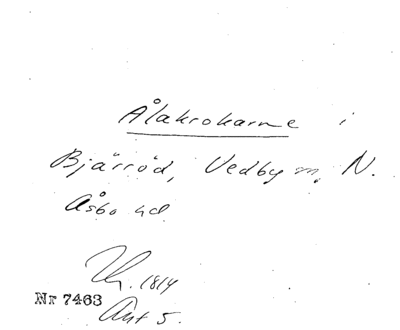 Ålakrokarne i
Bjärröd, Vedby m, N.
Åsbo hd
1814
Nr 7463
Akt 5.